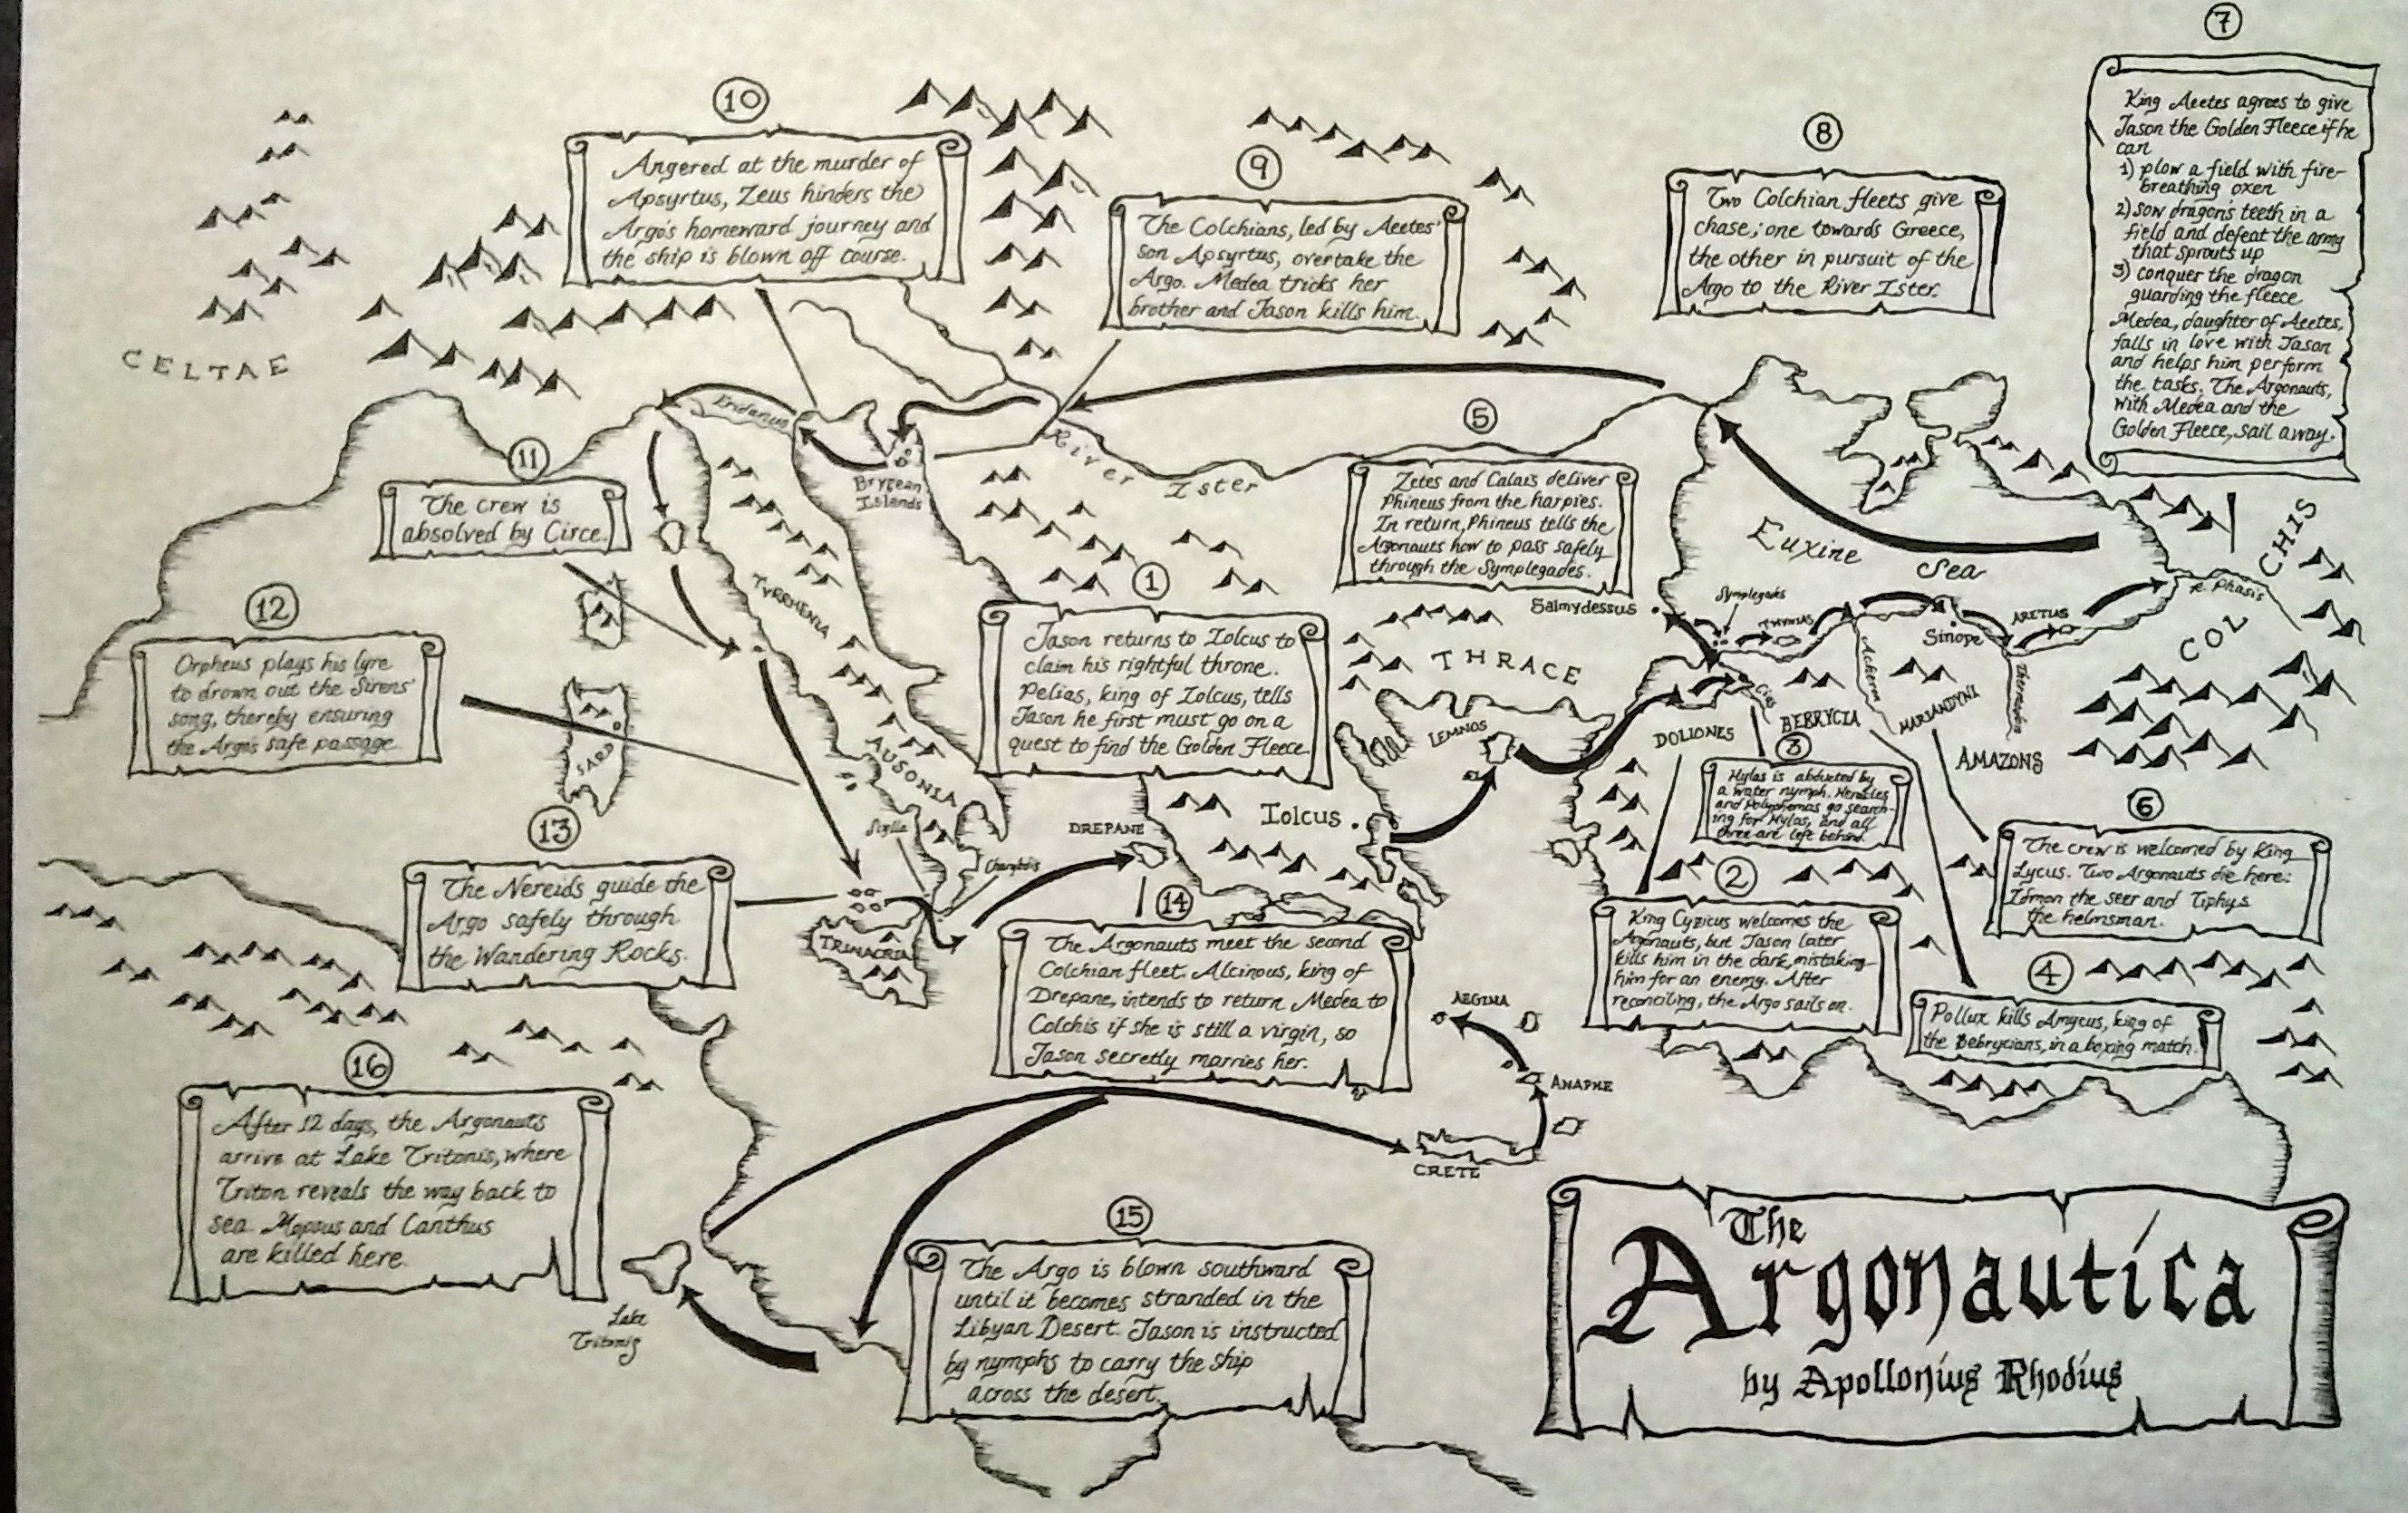 The
Argonautica
by Apollonius Rhodius
1
Jason returns to Iolcus to
claim his rightful throne.
Pelias, king of Iolcus, tells
Jason he first must go on a
quest to find the Golden Fleece.
2
King Cyzicus welcomes the
Argonauts, but Jason later
kills him in the dark, mistaking
him for an enemy. After
reconciling, the Argo sails on.
3
Hylas is abducted by
a water nymph. Heracles
and Polyphemus go search-
ing for Hylas, and all
three are left behind.
4
Pollux kills Amycus, king of
the Bebrycians, in a boxing match.
5
Zetes and Calais deliver
Phineus from the harpies.
In return, Phineus tells the
Argonauts how to pass safely
through the Symplegades.
6
The crew is welcomed by King
Lycus. Two Argonauts die here:
Idmon the seer and Tiphys
the helmsman.
7
King Aeetes agrees to give
Jason the Golden Fleece if he
can
1) plow a field with fire-
breathing oxen
2) sow dragon's teeth in a
field and defeat the army
that sprouts up
3) conquer the dragon
guarding the fleece
Medea, daughter of Aeetes,
falls in love with Jason
and helps him perform
the tasks. The Argonauts,
with Medea and the
Golden Fleece, sail away.
8
Two Colchian fleets give
chase; one towards Greece,
the other in pursuit of the
Argo to the River Ister.
9
The Colchians, led by Aeetes'
son Apsyrtus, overtake the
Argo. Medea tricks her
brother and Jason kills him.
10
Angered at the murder of
Apsyrtus, Zeus hinders the
Argo's homeward journey and
the ship is blown off course.
11
The crew is
absolved by Circe.
12
Orpheus plays his lyre
to drown out the Sirens'
song, thereby ensuring
the Argo's safe passage.
13
The Nereids guide the
Argo safely through
the Wandering Rocks.
14
The Argonauts meet the second
Colchian fleet. Alcinous, king of
Drepane, intends to return Medea to
Colchis if she is still a virgin, so
Jason secretly marries her.
15
The Argo is blown southward
until it becomes stranded in the
Libyan Desert. Jason is instructed
by nymphs to carry the ship
across the desert.
16
After 12 days, the Argonauts
arrive at Lake Tritonis, where
Triton reveals the way back to
sea. Mopsus and Canthus
are killed here.
CELTAE
Eridanus
Brygean
Islands
River Ister
TYRRHENIA
AUSONIA
SARD
Scylla
Charybdis
TRINACRIA
DREPANE
Iolcus
LEMNOS
THRACE
Salmydessus
Symplegades
THYNIAS
Euxine
Sea
Sinope
ARETIAS
R. Phasis
COLCHIS
Cius
DOLIONES
BEBRYCIA
Acheron
MARIANDYNI
Thermodon
AMAZONS
AEGINA
ANAPHE
CRETE
Lake
Tritonis